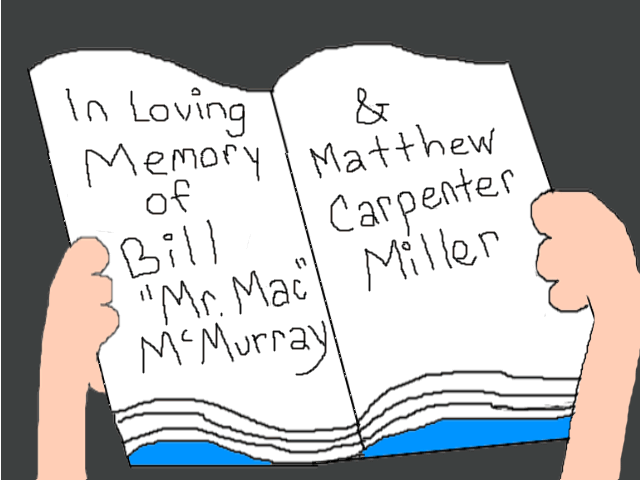 In Loving
Memory
of
Bill
"Mr. Mac"
McMurray
&
Matthew
Carpenter
Miller